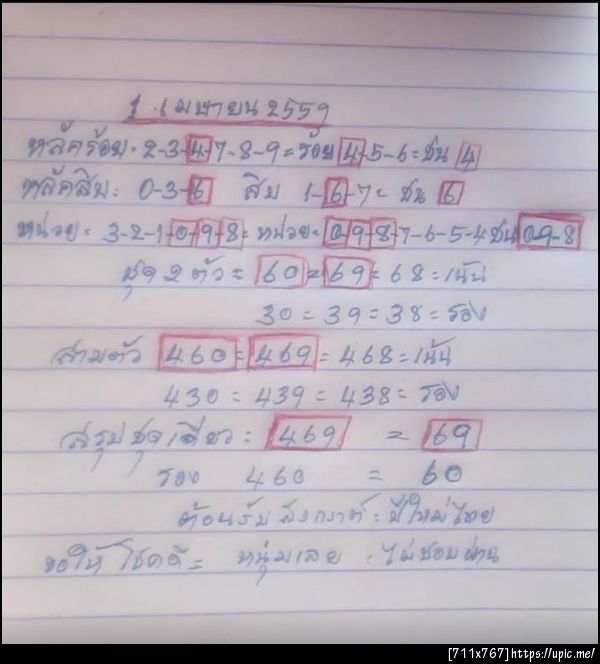 1 เมษายน 2559
หลัคร้อย = 2-3-4-7-8-9 = ร้อย 4-5-6 = ชน 4
หลัคสิบ = 0-3-6 สิบ 1-6-7 = ชน 6
หน่วย = 3-2-1-0-9-8 = หน่วย = 0-9-8-7-6-5-4 ชน 0-9-8
ชุด 2 ตัว = 60 = 69 = 68 = เน้น
30 = 39 = 38 = รอง
สามตัว 460 = 469 = 468 = เน้น
430 = 439 = 438 = รอง
สรุปชุดเดียว = 469 = 69
รอง 460 = 60
ต้อนรับสงกรานต์ = ปีใหม่ไทย
ขอให้โชคดี = หนุ่มเลย = ไม่ชอบผ่าน
[711x767] https://upic.me/